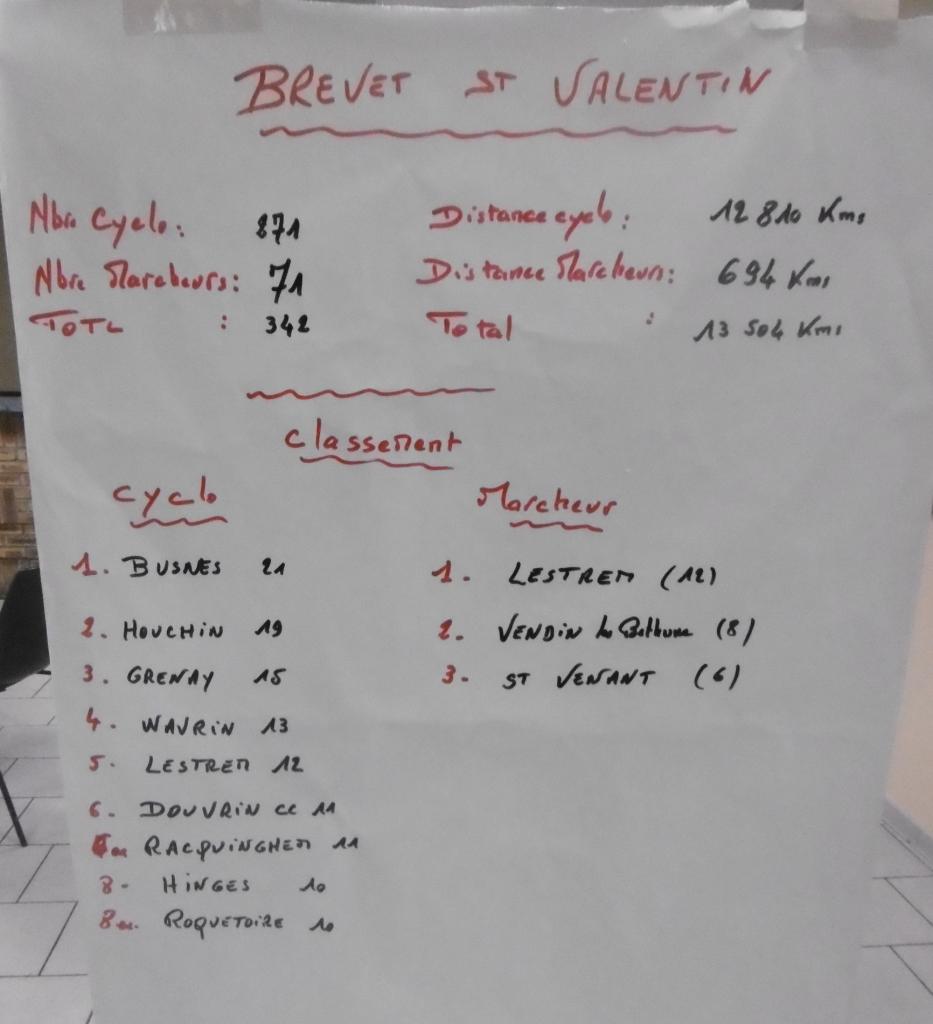 BREVET ST VALENTIN
Nbre Cyclo: 271 Distance cyclo: 12 810 Kms
Nbre Marcheurs: 71 Distance Marcheurs: 694 Kms
TOTL : 342 Total : 13 504 Kms
Classement
Cyclo Marcheur
1. BUSNES 21 1. LESTREM (12)
2. HOUCHIN 19 2. VENDIN les Bethune (8)
3. GRENAY 15 3. ST VENANT (6)
4. WAVRIN 13
5. LESTREM 12
6. DOUVRIN CC 11
6ex RACQUINGHEM 11
8- HINGES 10
8ex. ROQUETOIRE 10